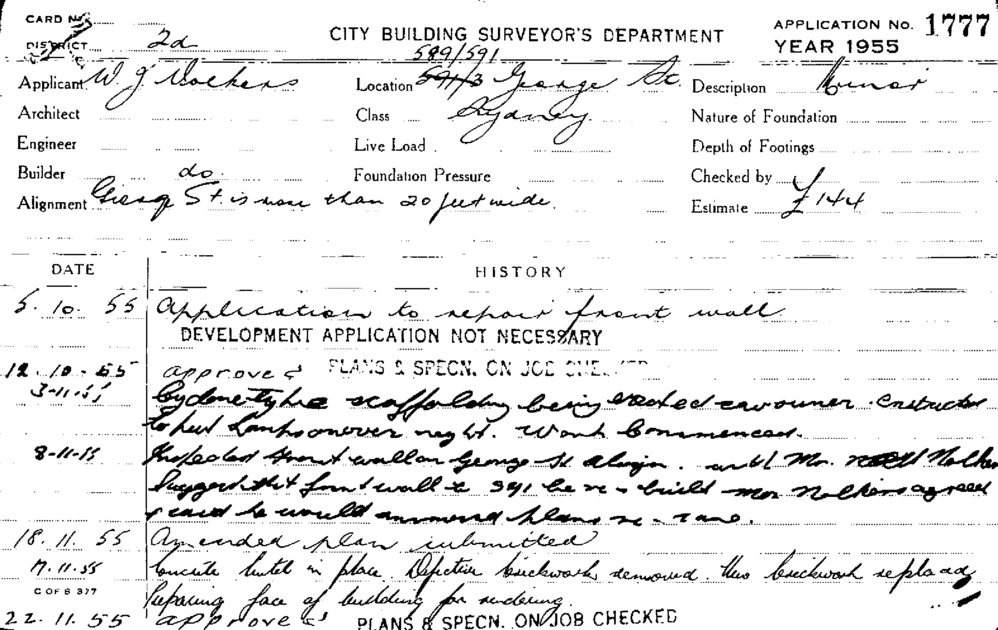 CARD No.
CITY BUILDING SURVEYOR'S DEPARTMENT
APPLICATION No. 1777
DISTRICT 2d
589/591
YEAR 1955
Applicant W. J.
Location 591/3 George St.
Description Minor
Architect
Class Sydney.
Nature of Foundation
Engineer
Live Load
Depth of Footings
Builder do.
Foundation Pressure
Checked by
Alignment George St is more than 20 feet wide.
Estimate £144
DATE
HISTORY
5. 10. 55 Application to repair front wall
DEVELOPMENT APPLICATION NOT NECESSARY
12. 10. 55 approved PLANS & SPECN. ON JOB CHE
3-11-55 scaffolding being erected owner
to over night. Work Commenced.
8-11-55 Inspected front wall on George St with Mr.
front wall to 591 be re-build Mr agreed
& said he would plans
18. 11. 55 Amended plan submitted
17.11.55 Concrete lintel in place. Defective brickwork removed. New brickwork
C OF S 377
Preparing face of building for rendering.
22. 11. 55 approved PLANS & SPECN. ON JOB CHECKED